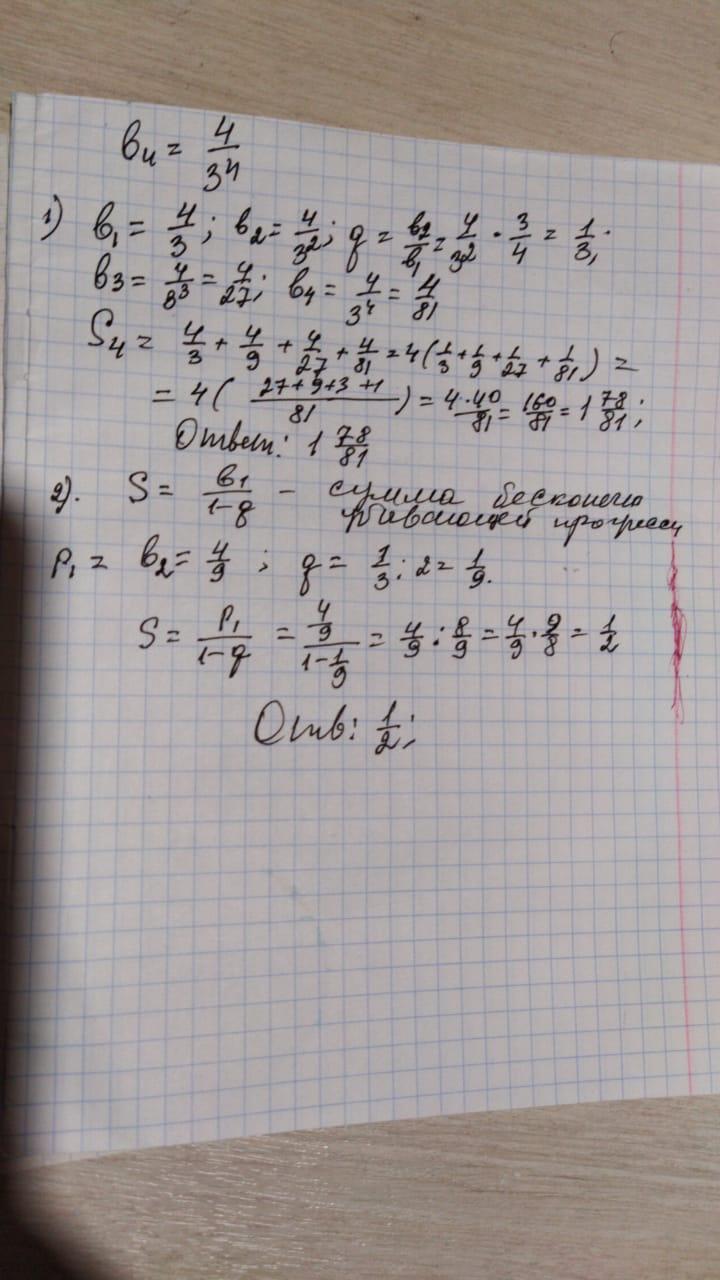 b₄ = 4/3⁴
1) b₁ = 4/3; b₂ = 4/3²; q = b₂/b₁ = 4/3² · 3/4 = 1/3;
b₃ = 4/3³ = 4/27; b₄ = 4/3⁴ = 4/81
S₄ = 4/3 + 4/9 + 4/27 + 4/81 = 4(1/3 + 1/9 + 1/27 + 1/81) =
= 4((27+9+3+1)/81) = 4·40/81 = 160/81 = 1 78/81;
Ответ: 1 78/81
2). S = b₁/(1-q) - сумма бесконечно
убивающей прогресси
P₁ = b₂ = 4/9; q = 1/3 : 2 = 1/9.
S = P₁/(1-q) = (4/9)/(1-1/9) = 4/9 : 8/9 = 4/9 · 9/8 = 1/2
Отв: 1/2;